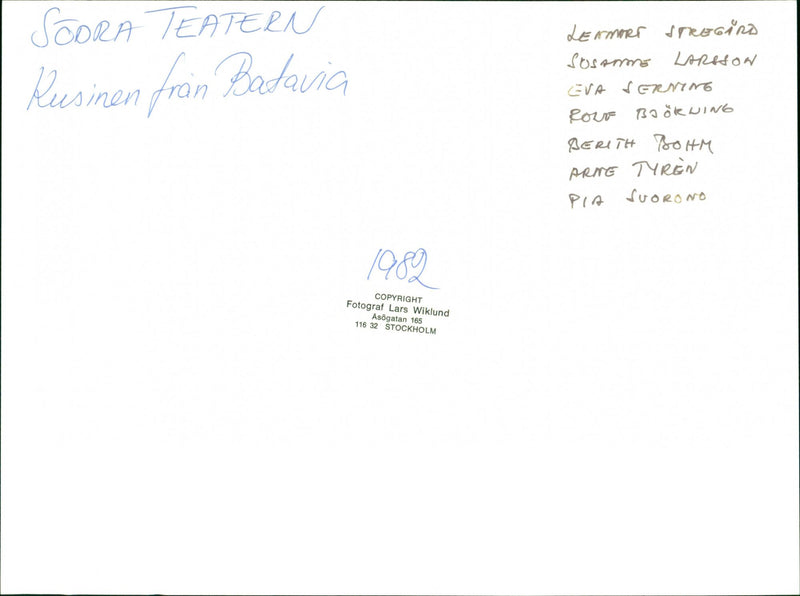 SÖDRA TEATERN
Kusinen från Batavia
LENNART STREGÅRD
SUSANNE LARSSON
EVA SERNING
ROLF BJÖRLING
BERITH BOHM
ARNE TYRÉN
PIA SVORONO
1982
COPYRIGHT
Fotograf Lars Wiklund
Åsögatan 165
116 32 STOCKHOLM